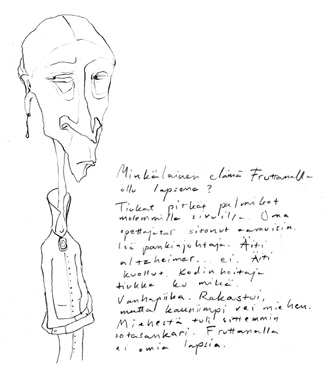 Minkälainen elämä Fruttanalla
ollu lapsena?
Tiukat pitkat palmikot
molemmilla sivuilla. Oma
opettajatar sitonut aaravisia.
Isä pankinjohtaja. Äiti
altzheimer... ei. Äiti
kuollut. Kodinhoitaja
tiukka ku mikä.
Vanhapiika. Rakastui,
mutta kauniimpi vei miehen.
Miehestä tuli sittemmin
sotasankari. Fruttanalla
ei omia lapsia.